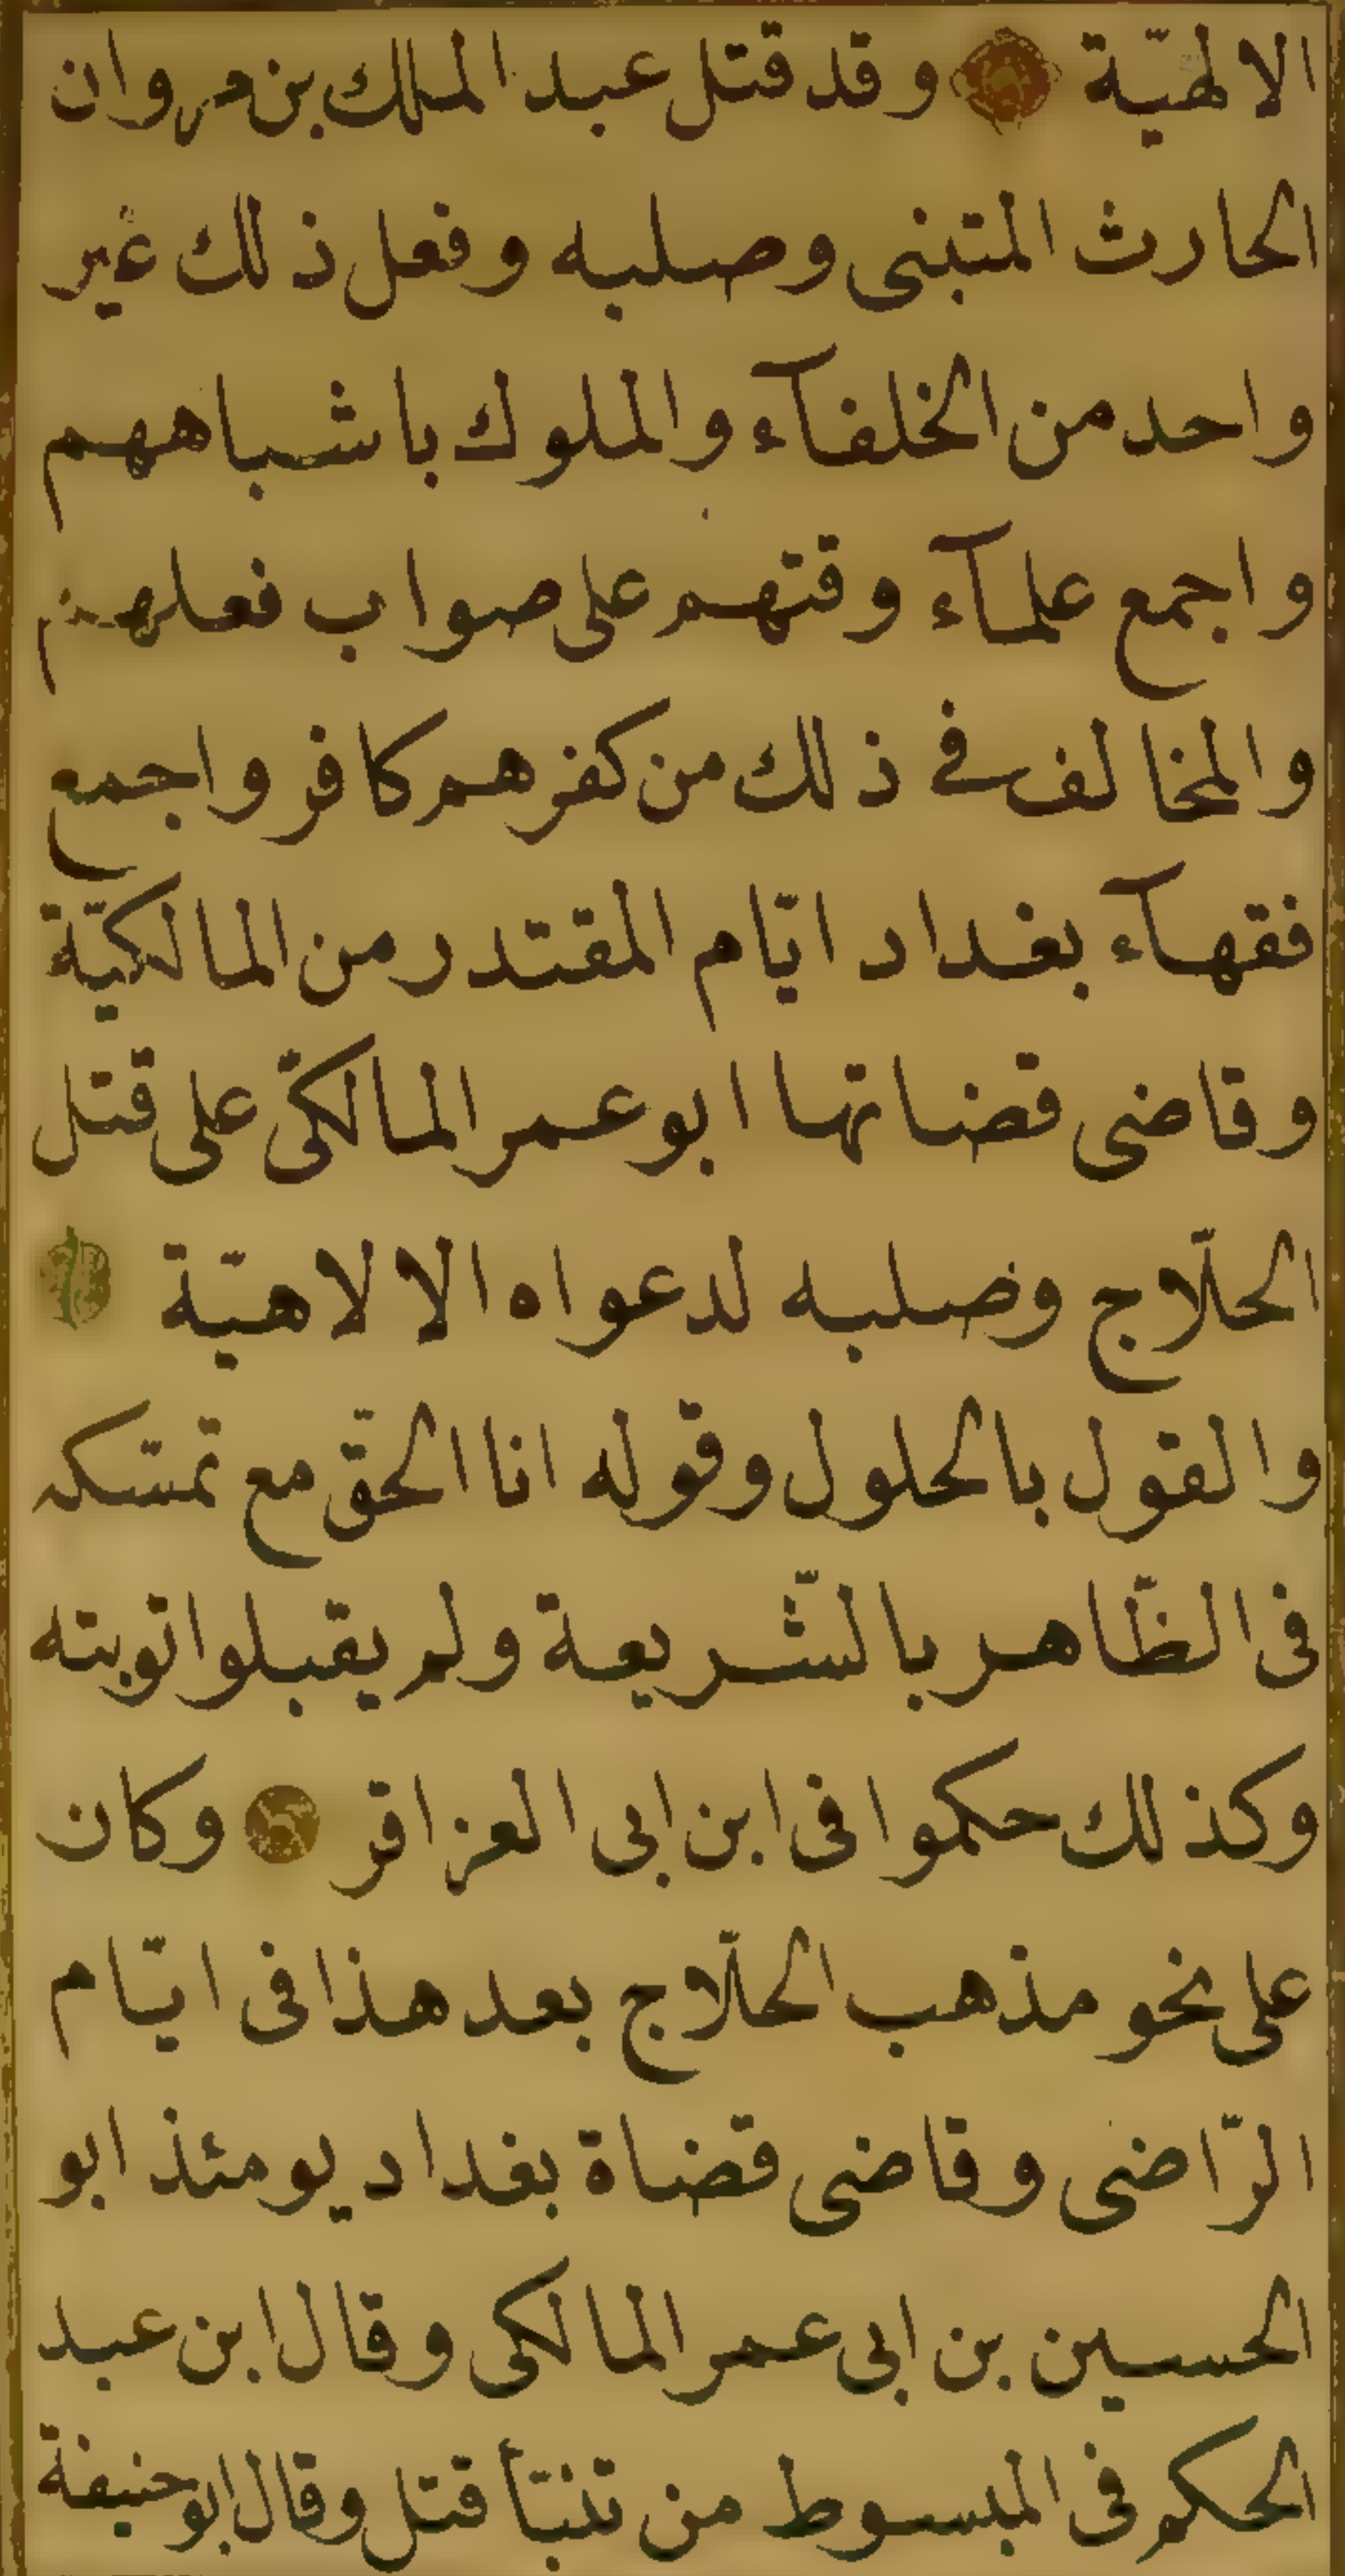 الالهيّة وقد قتل عبد الملك بن مروان
الحارث المتبنى وصلبه وفعل ذلك غير
واحد من الخلفآء والملوك باشباههم
واجمع علمآء وقتهم على صواب فعلهم
والمخالف فى ذلك من كفرهم كافر واجمع
فقهآء بغداد ايّام المقتدر من المالكيّة
وقاضى قضاتها ابو عمر المالكىّ على قتل
الحلّاج وصلبه لدعواه الا لاهيّة
والقول بالحلول وقوله انا الحقّ مع تمسّكه
فى الظّاهر بالشّريعة ولم يقبلوا توبته
وكذلك حكموا فى ابن ابى العزاقر وكان
على نحو مذهب الحلّاج بعد هذا فى ايّام
الرّاضى وقاضى قضاة بغداد يومئذ ابو
الحسين بن ابى عمر المالكى وقال ابن عبد
الحكم فى المبسوط من تنبّأ قتل وقال ابو حنيفة